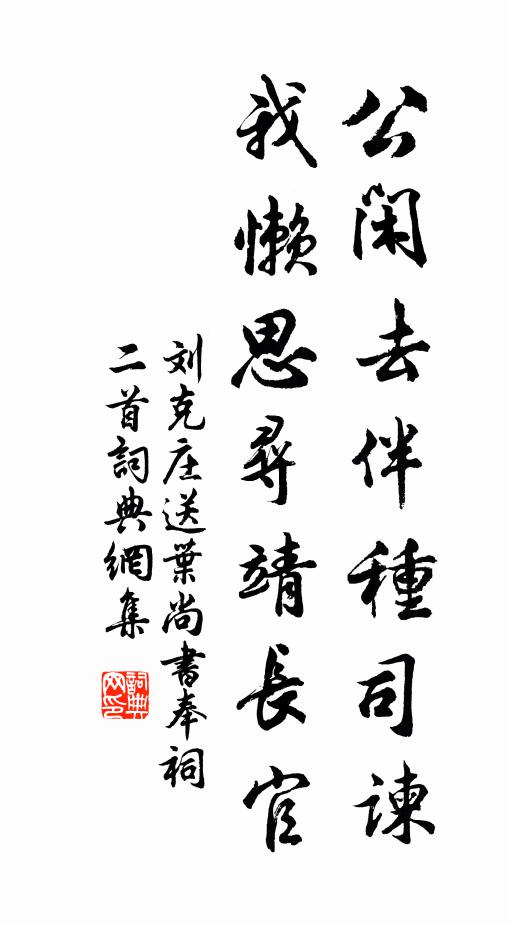 公閑去伴種司諫
我懶思尋靖長官
刘克庄送葉尚書奉祠
二首詞典網集
詞典
网印